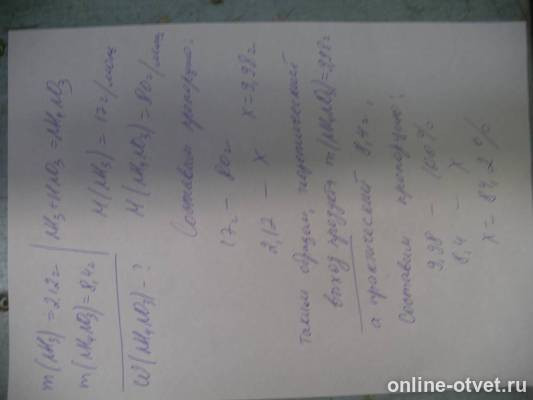 m(NH3) = 2,12г
m(NH4NO3) = 8,4г
W(NH4NO3) - ?
NH3 + HNO3 = NH4NO3
M(NH3) = 17г/моль
M(NH4NO3) = 80г/моль
Составим пропорцию:
17г - 80г
2,12 - x x = 9,98г
таким образом, теоретический
выход продукта m(NH4NO3) = 9,98г
а практический 8,4г,
Составим пропорцию:
9,98 - 100%
8,4 - x
x = 84,2%
online-otvet.ru